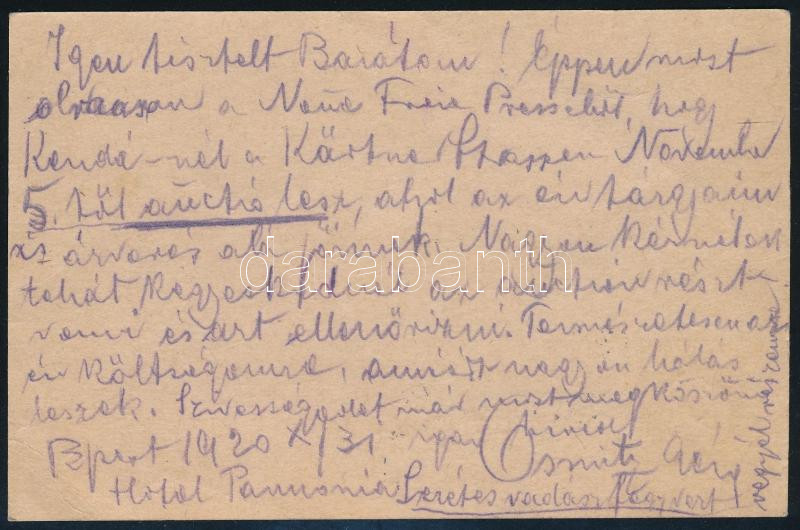 Igen tisztelt Barátom! Éppen most
olvasom a Neue Freie Presseből, hogy
Kende-nél a Kärtner Strassen November
5.től auctió lesz, ahol az én tárgyaim
is árverés alá jönnek. Nagyon kérnélek
tehát kegyeskednél az auctión részt
venni és azt ellenőrizni. Természetesen az
én költségemre, amiért nagyon hálás
leszek. Szivességedet már most megköszöni
Bpest 1920 X/31. igaz hived
Osmitz Géza
Hotel Pannonia Szeretes vadászfegyvert
vegyél részemre
darabanth